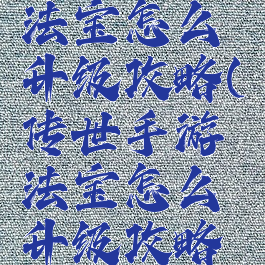 法宝怎么
升级攻略(
传世手游
法宝怎么
升级攻略